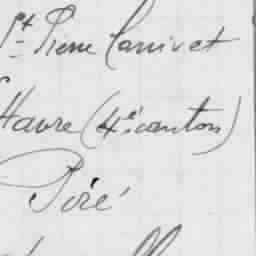 St Pierre Canivet
Havre (4e canton)
Piré